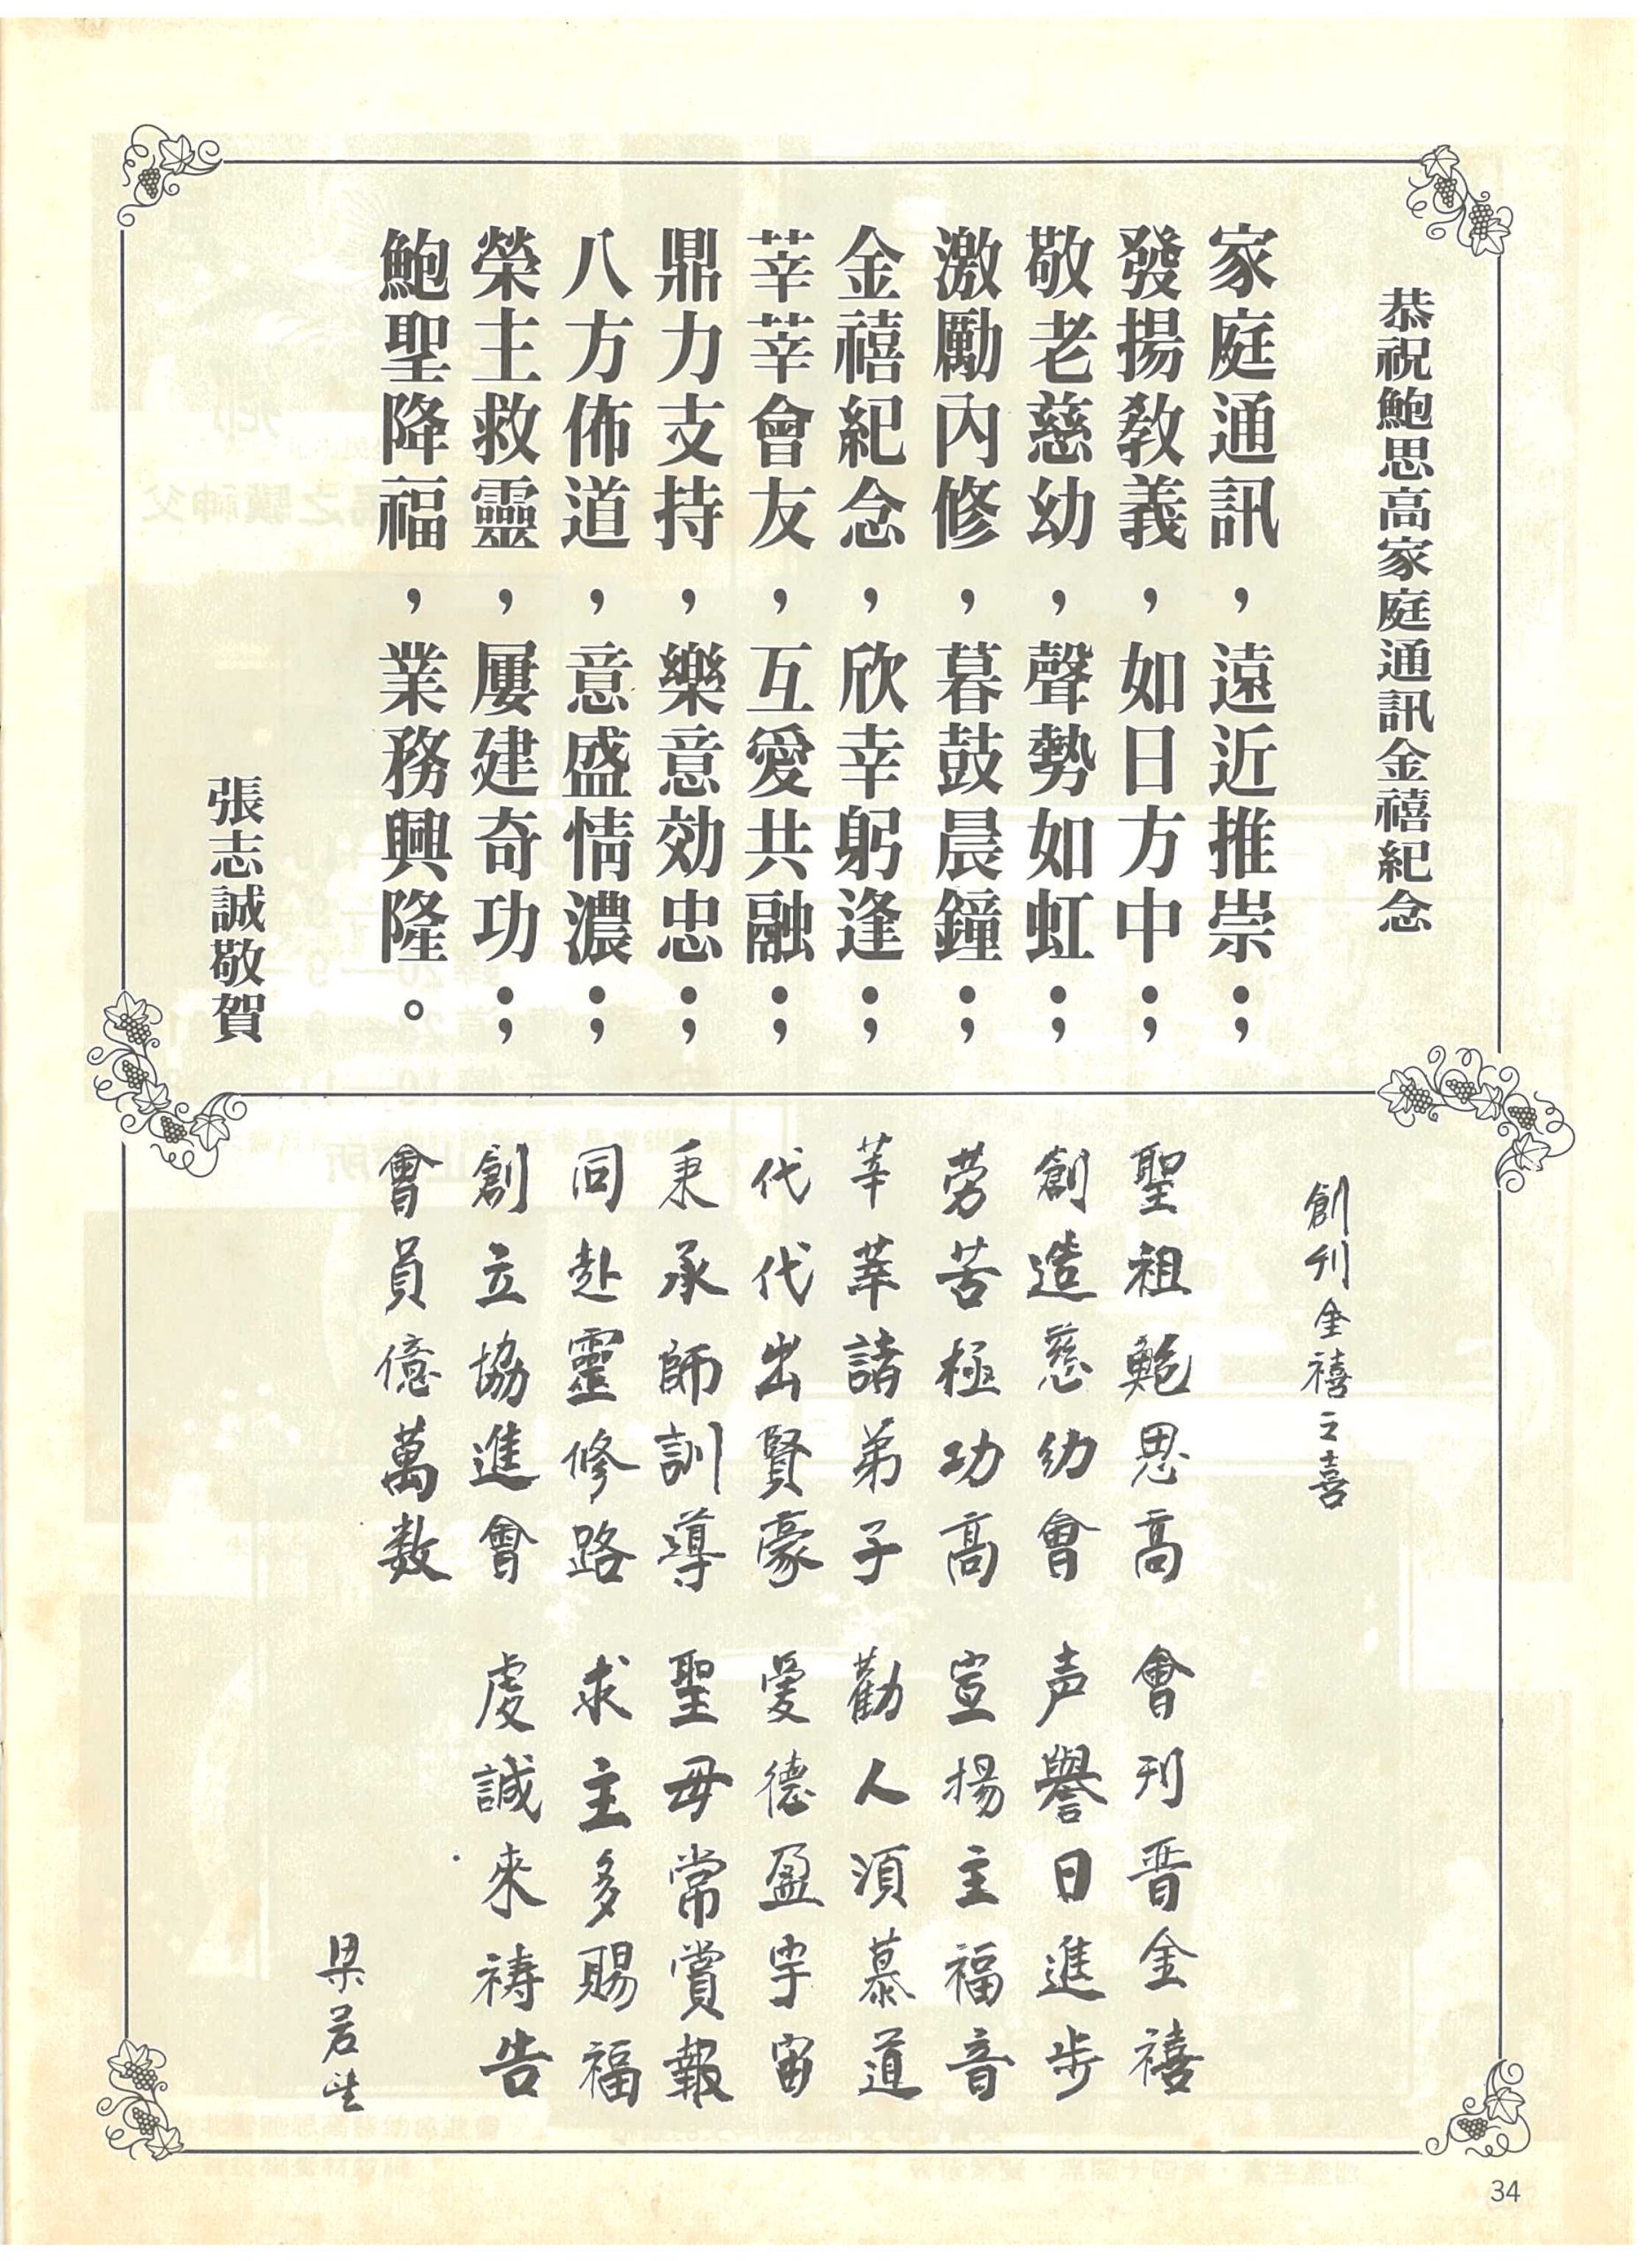 恭祝鮑思高家庭通訊金禧紀念
家庭通訊，遠近推崇；
發揚教義，如日方中；
敬老慈幼，聲勢如虹；
激勵內修，暮鼓晨鐘；
金禧紀念，欣幸躬逢；
莘莘會友，互愛共融；
鼎力支持，樂意効忠；
八方佈道，意盛情濃；
榮主救靈，屢建奇功；
鮑聖降福，業務興隆。
張志誠敬賀
創刊金禧之喜
聖祖鮑思高
創造慈幼會
勞苦極功高
莘莘諸弟子
代代出賢豪
秉承師訓導
同赴靈修路
創立協進會
會員億萬数
會刊晋金禧
声譽日進步
宣揚主福音
勸人須慕道
愛德盈宇宙
聖母常賞報
求主多賜福
虔誠來禱告
梁若
34